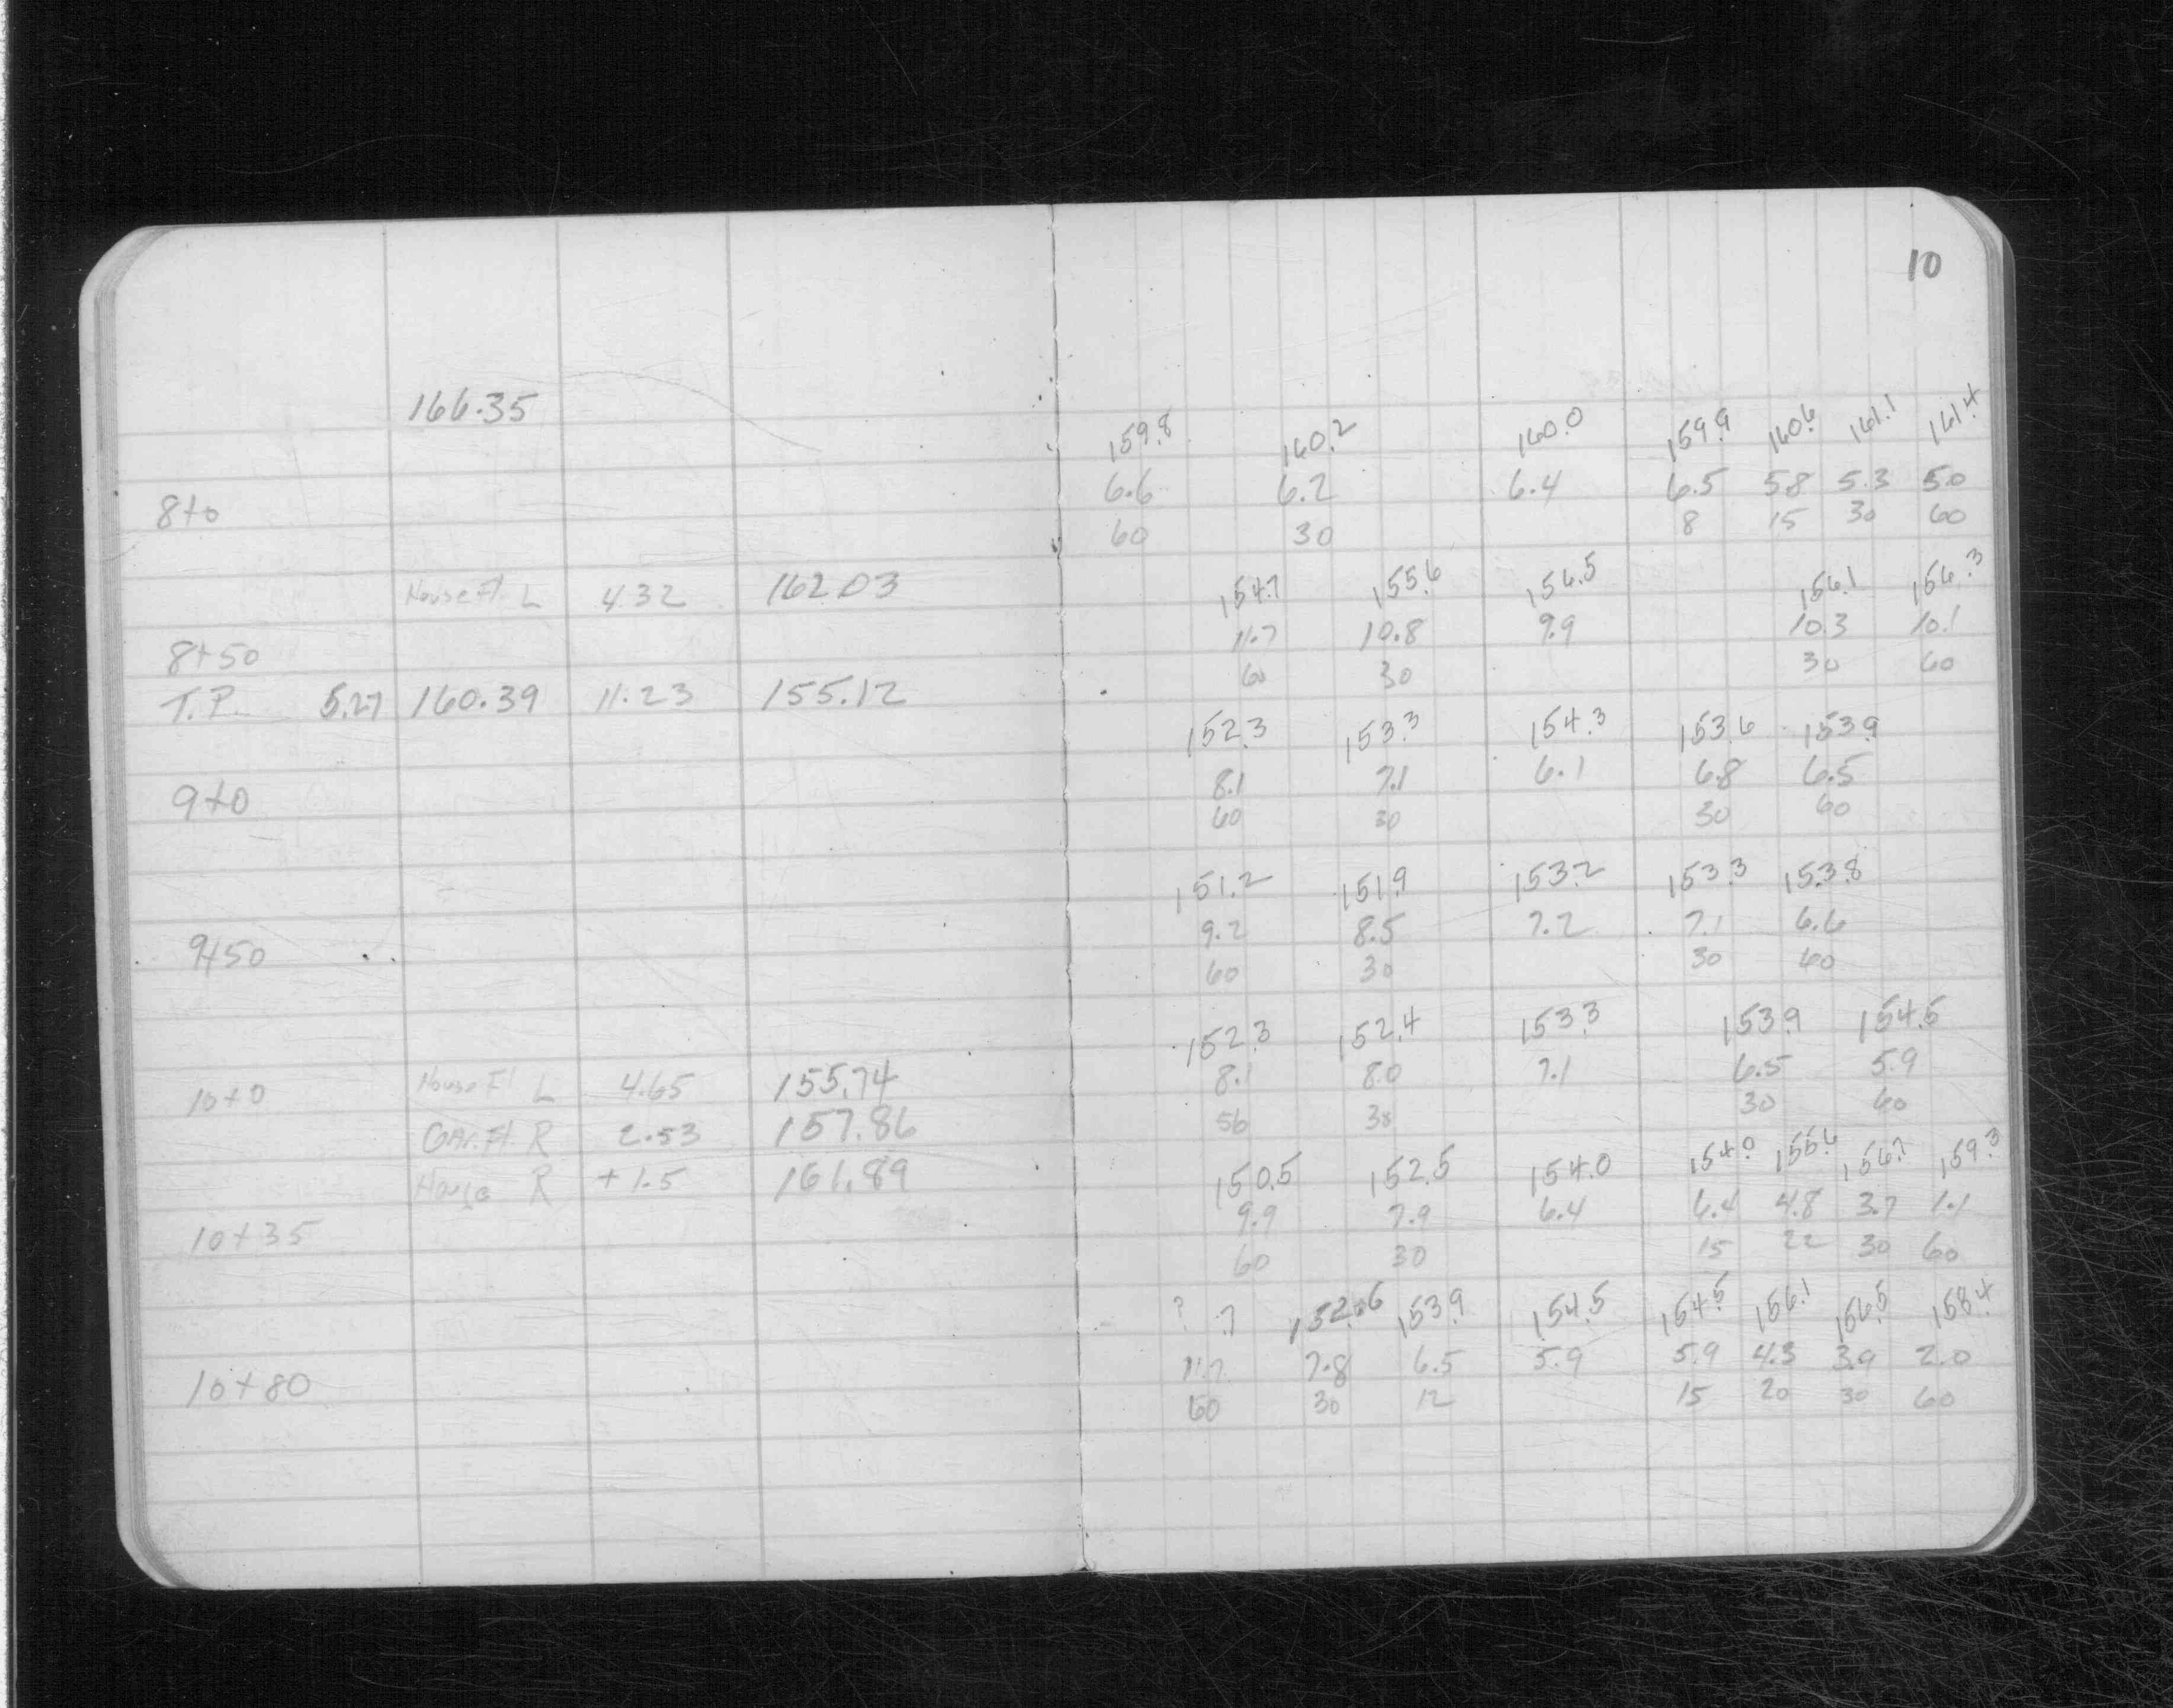 10
166.35
159.8 160.2 160.0 159.9 160.6 161.1 161.4
6.6 6.2 6.4 6.5 5.8 5.3 5.0
8+0
60 30 8 15 30 60
House Fl. L 4.32 162.03
154.7 155.6 156.5 156.1 156.3
11.7 10.8 9.9 10.3 10.1
8+50
60 30 30 60
T.P. 5.27 160.39 11.23 155.12
152.3 153.3 154.3 153.6 153.9
8.1 7.1 6.1 6.8 6.5
9+0
60 30 30 60
151.2 151.9 153.2 153.3 153.8
9.2 8.5 7.2 7.1 6.6
9+50
60 30 30 60
152.3 152.4 153.3 153.9 154.5
10+0 House Fl L 4.65 155.74
8.1 8.0 7.1 6.5 5.9
56 30 30 60
Gar. Fl. R 2.53 157.86
House R +1.5 161.89
150.5 152.5 154.0 154.0 155.6 156.7 159.3
9.9 7.9 6.4 6.4 4.8 3.7 1.1
10+35
60 30 15 22 30 60
? .7 152.6 153.9 154.5 154.5 156.1 156.5 158.4
11.7 7.8 6.5 5.9 5.9 4.3 3.9 2.0
10+80
60 30 12 15 20 30 60